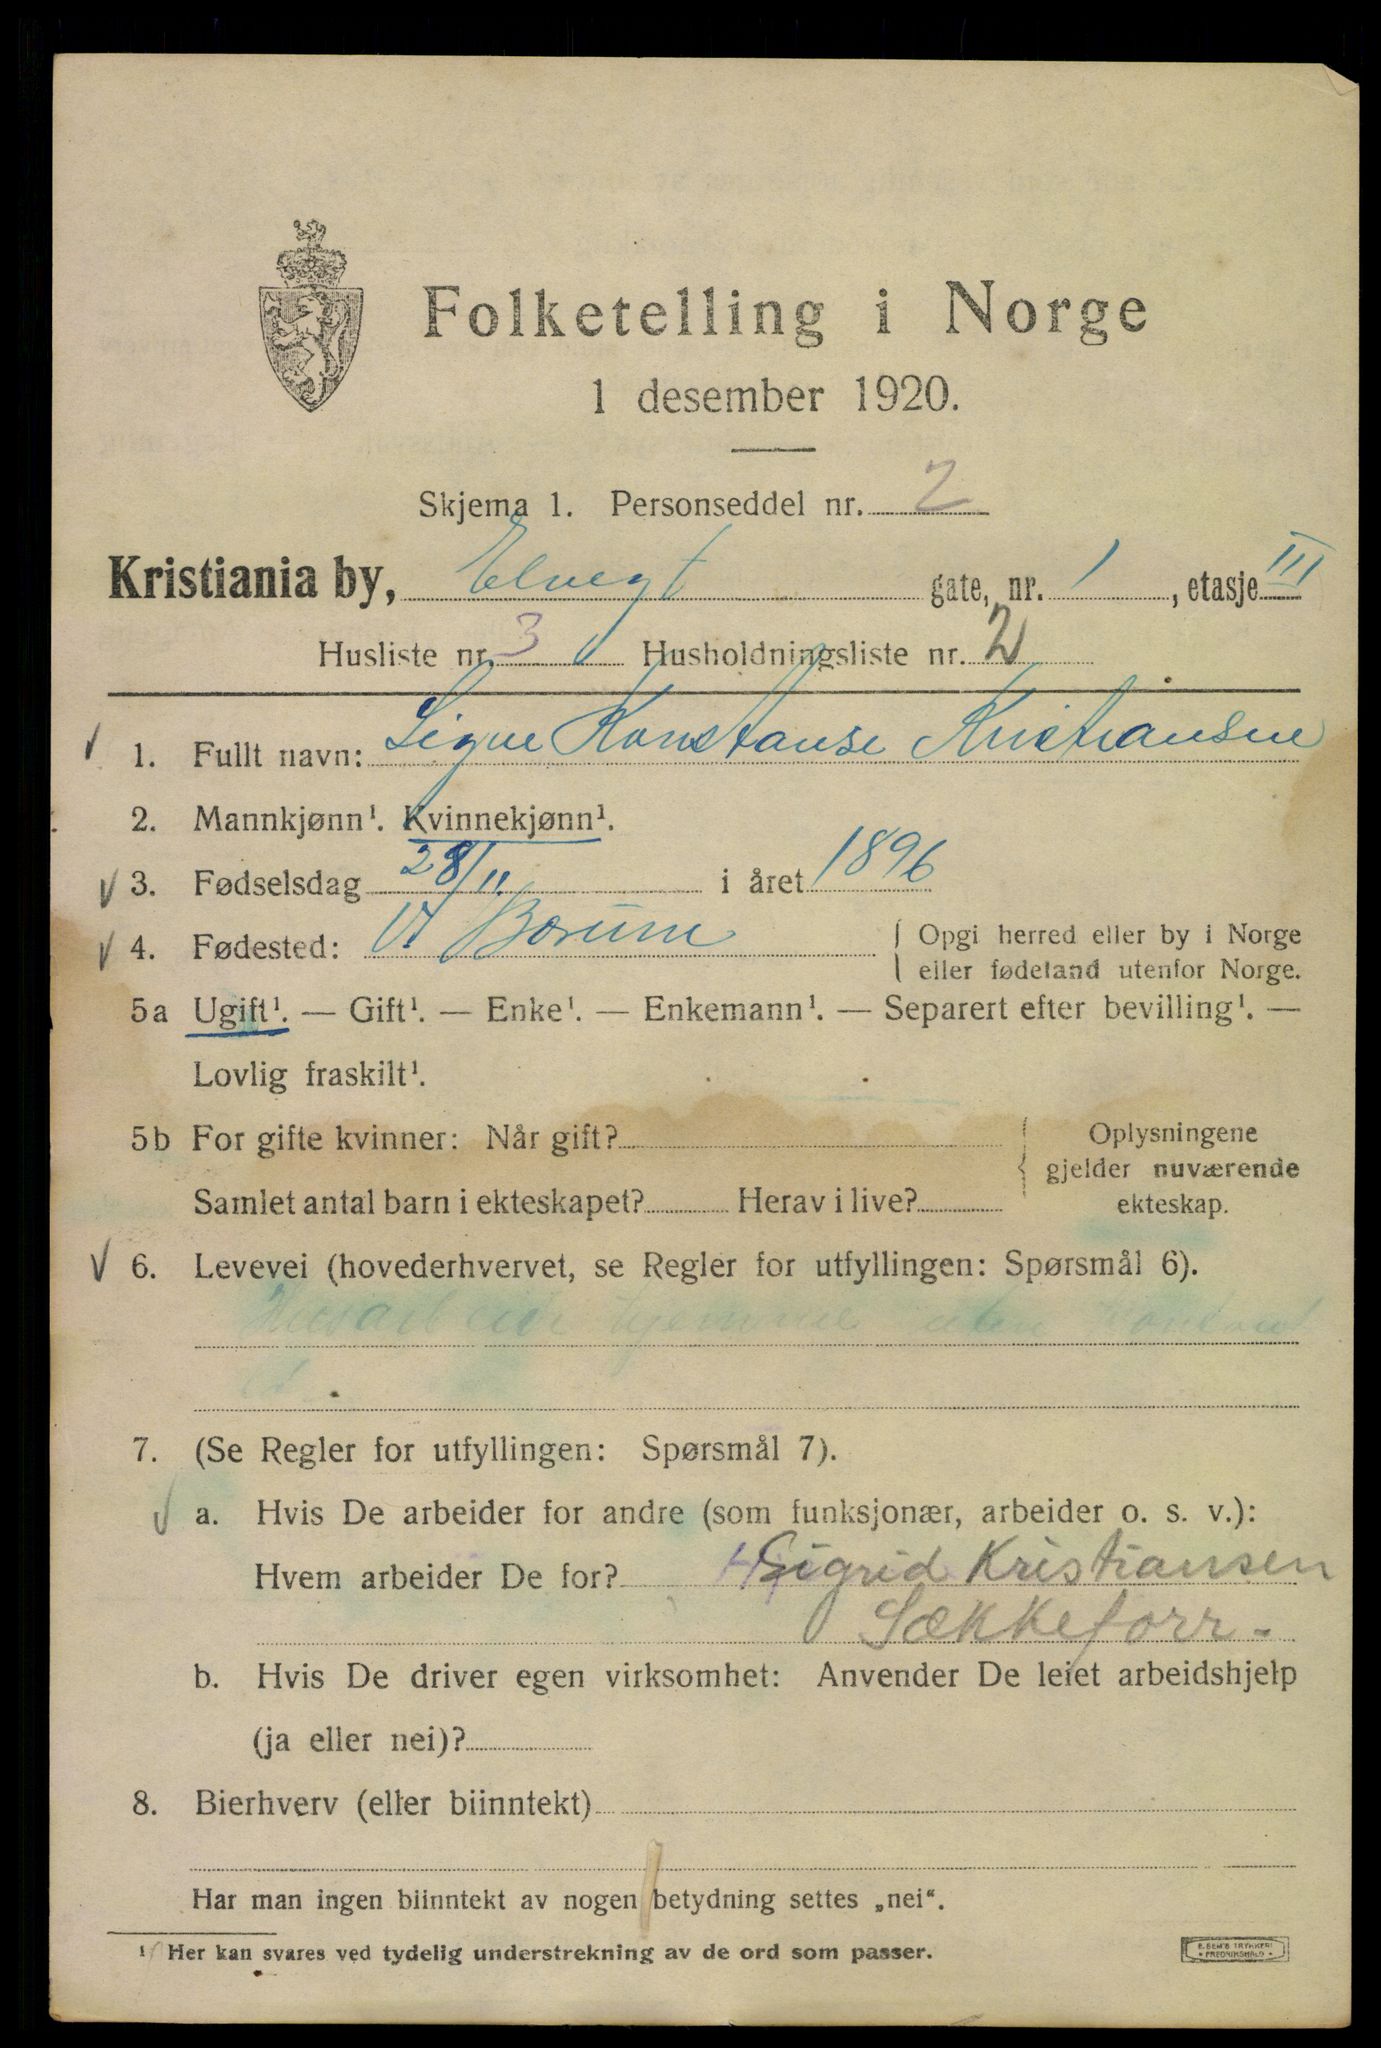 Folketelling i Norge
1 desember 1920.
Skjema 1. Personseddel nr. 2
Kristiania by, Elvegt gate, nr. 1, etasje III
Husliste nr. 3 Husholdningsliste nr. 2
1. Fullt navn: Signe Konstanse Kristiansen
2. Mannkjønn¹. Kvinnekjønn¹.
3. Fødselsdag 28/11. i året 1896
4. Fødested: V Bærum { Opgi herred eller by i Norge
eller fødeland utenfor Norge.
5a Ugift¹. — Gift¹. — Enke¹. — Enkemann¹. — Separert efter bevilling¹. —
Lovlig fraskilt¹.
5b For gifte kvinner: Når gift? { Oplysningene
gjelder nuværende
Samlet antal barn i ekteskapet? Herav i live? ekteskap.
6. Levevei (hovederhvervet, se Regler for utfyllingen: Spørsmål 6).
Husarbeide hjemme uten kontant
7. (Se Regler for utfyllingen: Spørsmål 7).
a. Hvis De arbeider for andre (som funksjonær, arbeider o. s. v.):
Hvem arbeider De for? Sigrid Kristiansen
Sækkeforr.
b. Hvis De driver egen virksomhet: Anvender De leiet arbeidshjelp
(ja eller nei)?
8. Bierhverv (eller biinntekt)
Har man ingen biinntekt av nogen betydning settes „nei“.
¹ Her kan svares ved tydelig understrekning av de ord som passer.
E. SEM'S TRYKKERI
FREDRIKSHALD